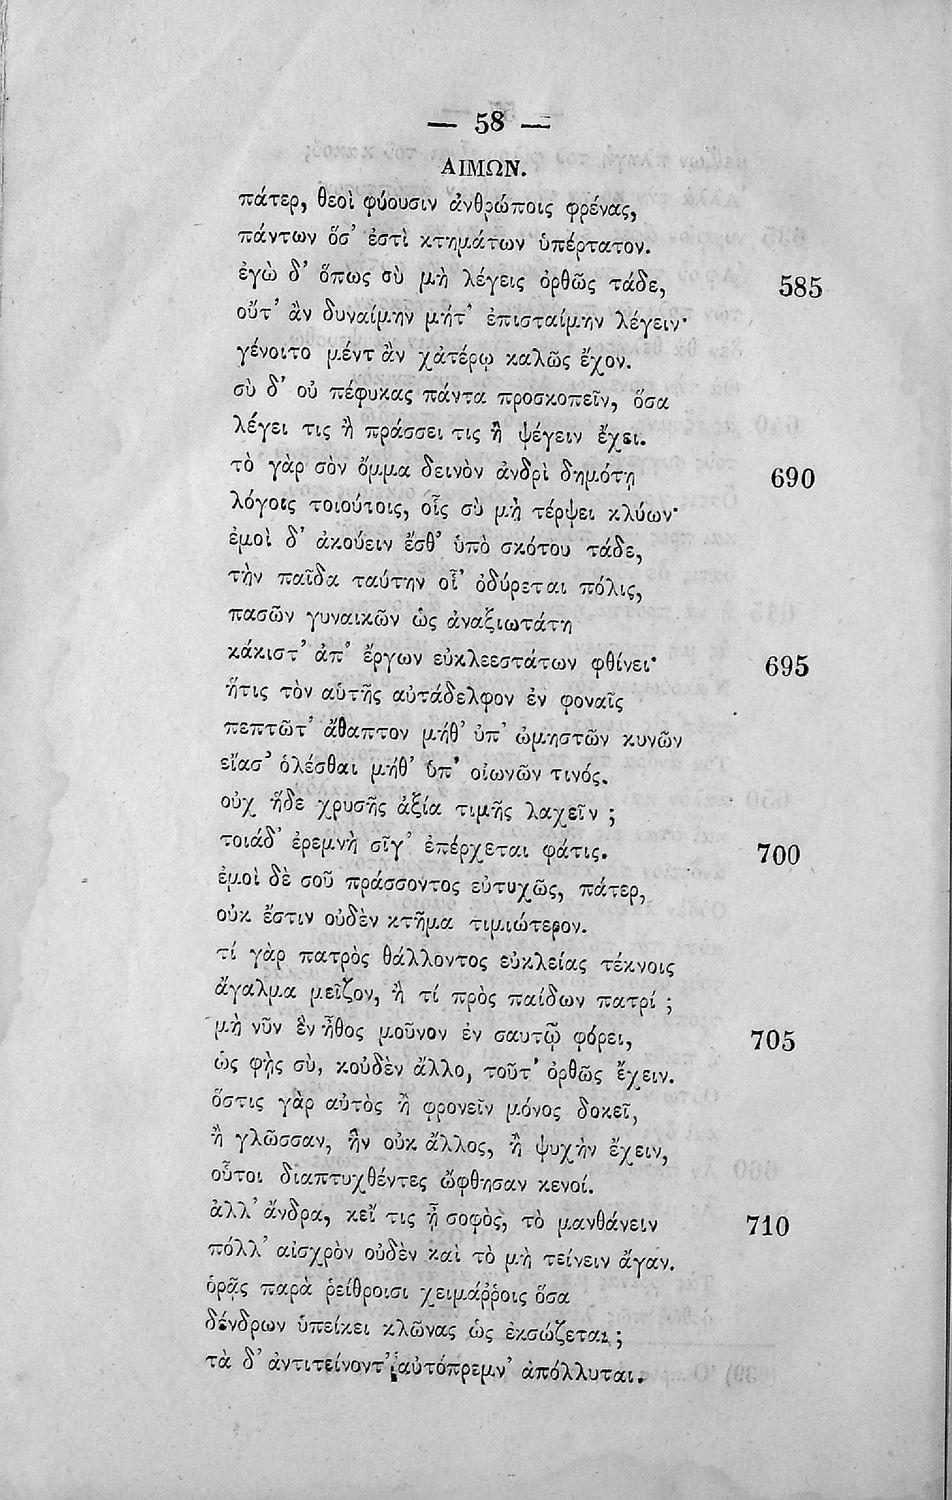 — 58 —
ΑΙΜΩΝ.
πάτερ, θεοὶ φύουσιν ἀνθρώποις φρένας,
πάντων ὅσ' ἐστὶ κτημάτων ὑπέρτατον.
ἐγὼ δ' ὅπως σὺ μὴ λέγεις ὀρθῶς τάδε, 585
οὔτ' ἂν δυναίμην μήτ' ἐπισταίμην λέγειν·
γένοιτο μέντ ἂν χἀτέρῳ καλῶς ἔχον.
σὺ δ' οὐ πέφυκας πάντα προσκοπεῖν, ὅσα
λέγει τις ἢ πράσσει τις ἢ ψέγειν ἔχει.
τὸ γὰρ σὸν ὄμμα δεινὸν ἀνδρὶ δημότῃ 690
λόγοις τοιούτοις, οἷς σὺ μὴ τέρψει κλύων·
ἐμοὶ δ' ἀκούειν ἔσθ' ὑπὸ σκότου τάδε,
τὴν παῖδα ταύτην οἷ' ὀδύρεται πόλις,
πασῶν γυναικῶν ὡς ἀναξιωτάτη
κάκιστ' ἀπ' ἔργων εὐκλεεστάτων φθίνει· 695
ἥτις τὸν αὑτῆς αὐτάδελφον ἐν φοναῖς
πεπτῶτ' ἄθαπτον μήθ' ὑπ' ὠμηστῶν κυνῶν
εἴασ' ὀλέσθαι μήθ' ὑπ' οἰωνῶν τινός.
οὐχ ἥδε χρυσῆς ἀξία τιμῆς λαχεῖν ;
τοιάδ' ἐρεμνὴ σῖγ' ἐπέρχεται φάτις. 700
ἐμοὶ δὲ σοῦ πράσσοντος εὐτυχῶς, πάτερ,
οὐκ ἔστιν οὐδὲν κτῆμα τιμιώτερον.
τί γὰρ πατρὸς θάλλοντος εὐκλείας τέκνοις
ἄγαλμα μεῖζον, ἢ τί πρὸς παίδων πατρί ;
μὴ νῦν ἓν ἦθος μοῦνον ἐν σαυτῷ φόρει, 705
ὡς φὴς σὺ, κοὐδὲν ἄλλο, τοῦτ' ὀρθῶς ἔχειν.
ὅστις γὰρ αὐτὸς ἢ φρονεῖν μόνος δοκεῖ,
ἢ γλῶσσαν, ἣν οὐκ ἄλλος, ἢ ψυχὴν ἔχειν,
οὗτοι διαπτυχθέντες ὤφθησαν κενοί.
ἀλλ' ἄνδρα, κεἴ τις ᾖ σοφὸς, τὸ μανθάνειν 710
πόλλ' αἰσχρὸν οὐδὲν καὶ τὸ μὴ τείνειν ἄγαν.
ὁρᾷς παρὰ ῥείθροισι χειμάῤῥοις ὅσα
δένδρων ὑπείκει κλῶνας ὡς ἐκσώζεται ;
τὰ δ' ἀντιτείνοντ' αὐτόπρεμν' ἀπόλλυται.